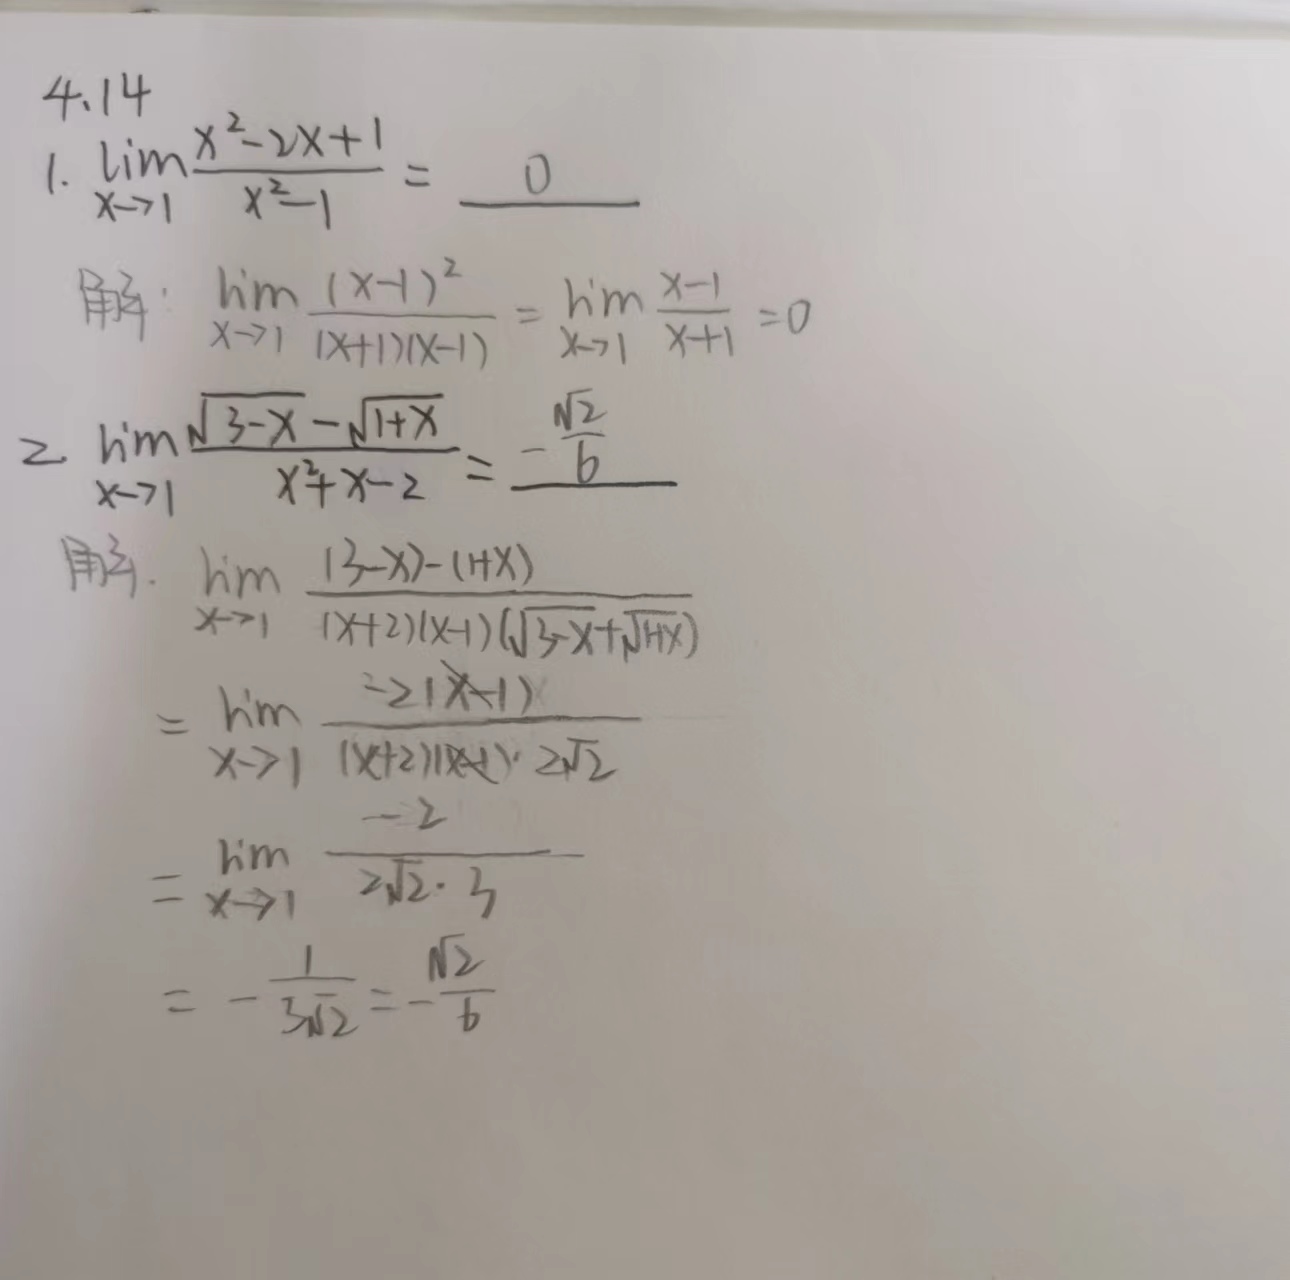 4.14
1. lim x→1 (x²-2x+1)/(x²-1) = 0
解: lim x→1 (x-1)²/((x+1)(x-1)) = lim x→1 (x-1)/(x+1) = 0
2 lim x→1 (√(3-x) - √(1+x))/(x²+x-2) = -√2/6
解. lim x→1 ((3-x)-(1+x))/((x+2)(x-1)(√(3-x)+√(1+x)))
= lim x→1 -2(x-1)/((x+2)(x-1)·2√2)
= lim x→1 -2/(2√2·3)
= -1/(3√2) = -√2/6